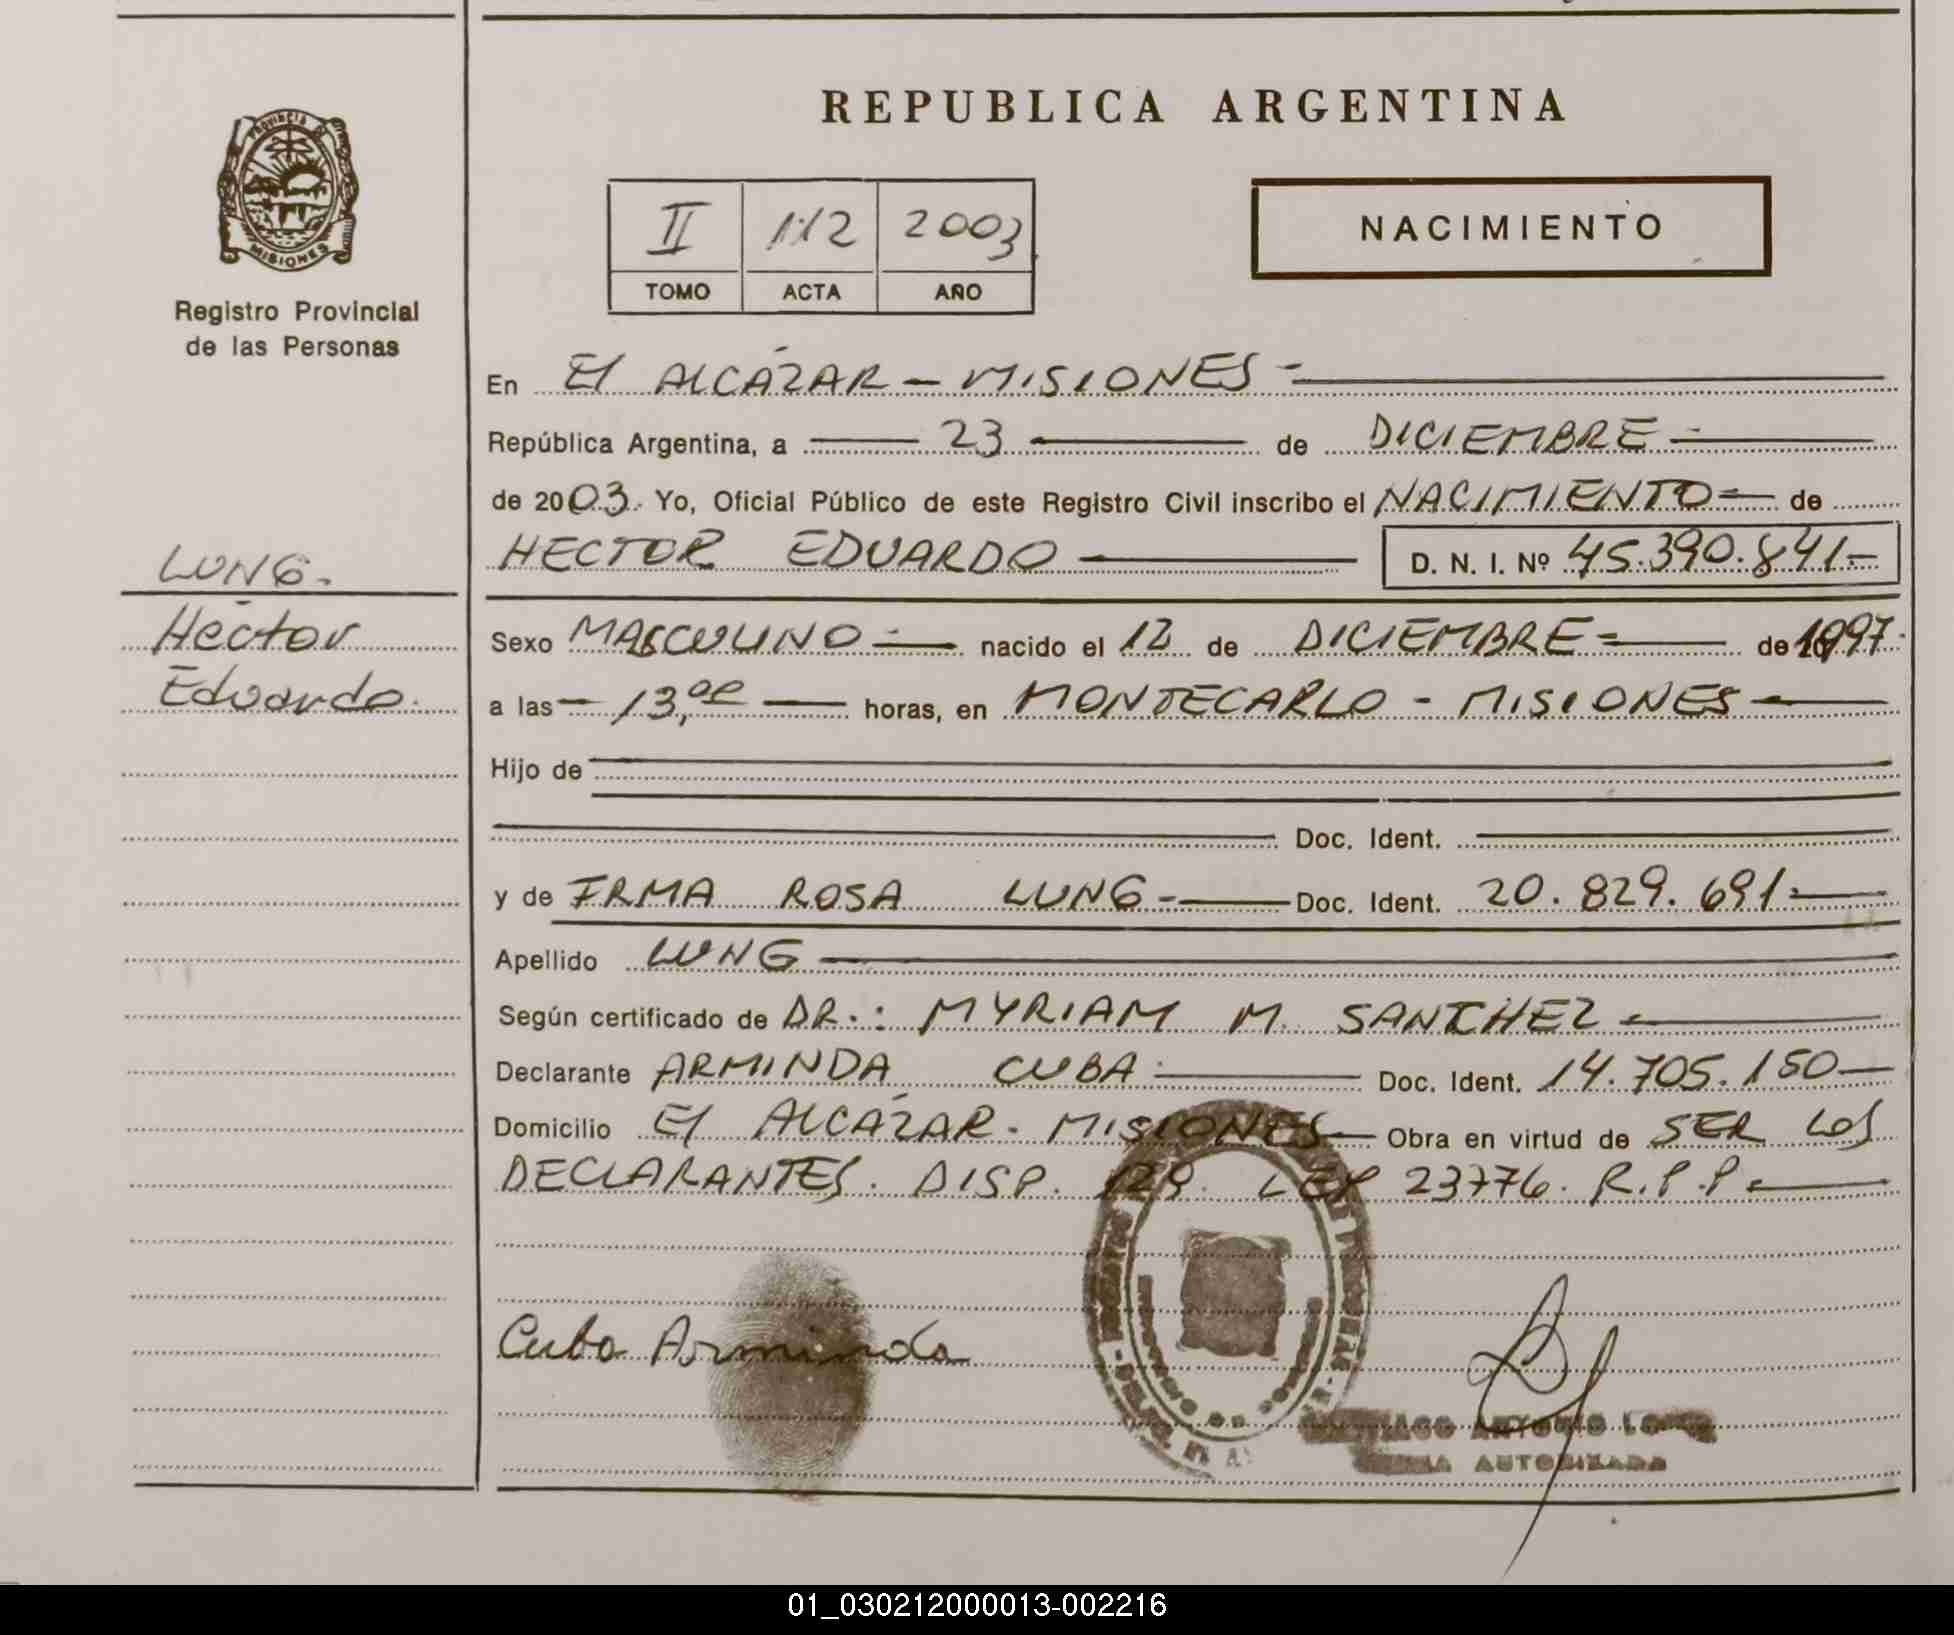 REPUBLICA ARGENTINA
PROVINCIA DE
MISIONES
Registro Provincial
de las Personas
II 112 2003
TOMO ACTA AÑO
NACIMIENTO
En El ALCÁZAR - MISIONES -
República Argentina, a 23 de DICIEMBRE -
de 2003. Yo, Oficial Público de este Registro Civil inscribo el NACIMIENTO = de
HECTOR EDUARDO D. N. I. Nº 45.390.841.-
LUNG.
Héctor
Eduardo.
Sexo MASCULINO - nacido el 12 de DICIEMBRE = de 1997.
a las - 13,00 horas, en MONTECARLO - MISIONES -
Hijo de
Doc. Ident.
y de IRMA ROSA LUNG - Doc. Ident. 20.829.691 -
Apellido LUNG
Según certificado de DR.: MYRIAM M. SANCHEZ -
Declarante ARMINDA CUBA - Doc. Ident. 14.705.150 -
Domicilio El ALCÁZAR - MISIONES - Obra en virtud de SER LOS
DECLARANTES. DISP. 129. LEY 23776. R.P.P. -
Cuba Arminda
ANTONIO
AUTORIZADA
01_030212000013-002216